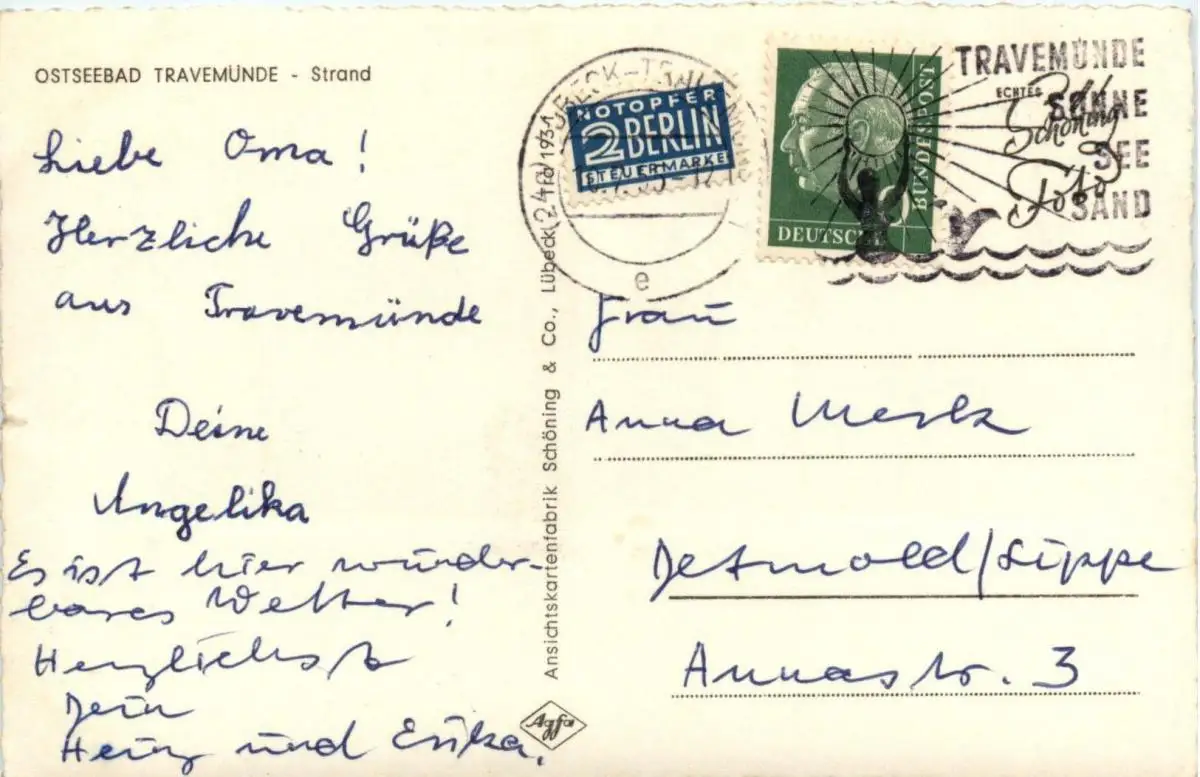 OSTSEEBAD TRAVEMÜNDE - Strand
Liebe Oma!
Herzliche Grüße
aus Travemünde
Deine
Angelika
Es ist hier wunder-
bares Wetter!
Herzlichst
Dein
Heinz und Erika.
Ansichtskartenfabrik Schöning & Co., Lübeck
Agfa
NOTOPFER
2 BERLIN
STEUERMARKE
e
DEUTSCHE
BUNDESPOST
TRAVEMÜNDE
SONNE
SEE
SAND
ECHTES
Schöning
Foto
Frau
Anna
Detmold/Lippe
Annastr. 3